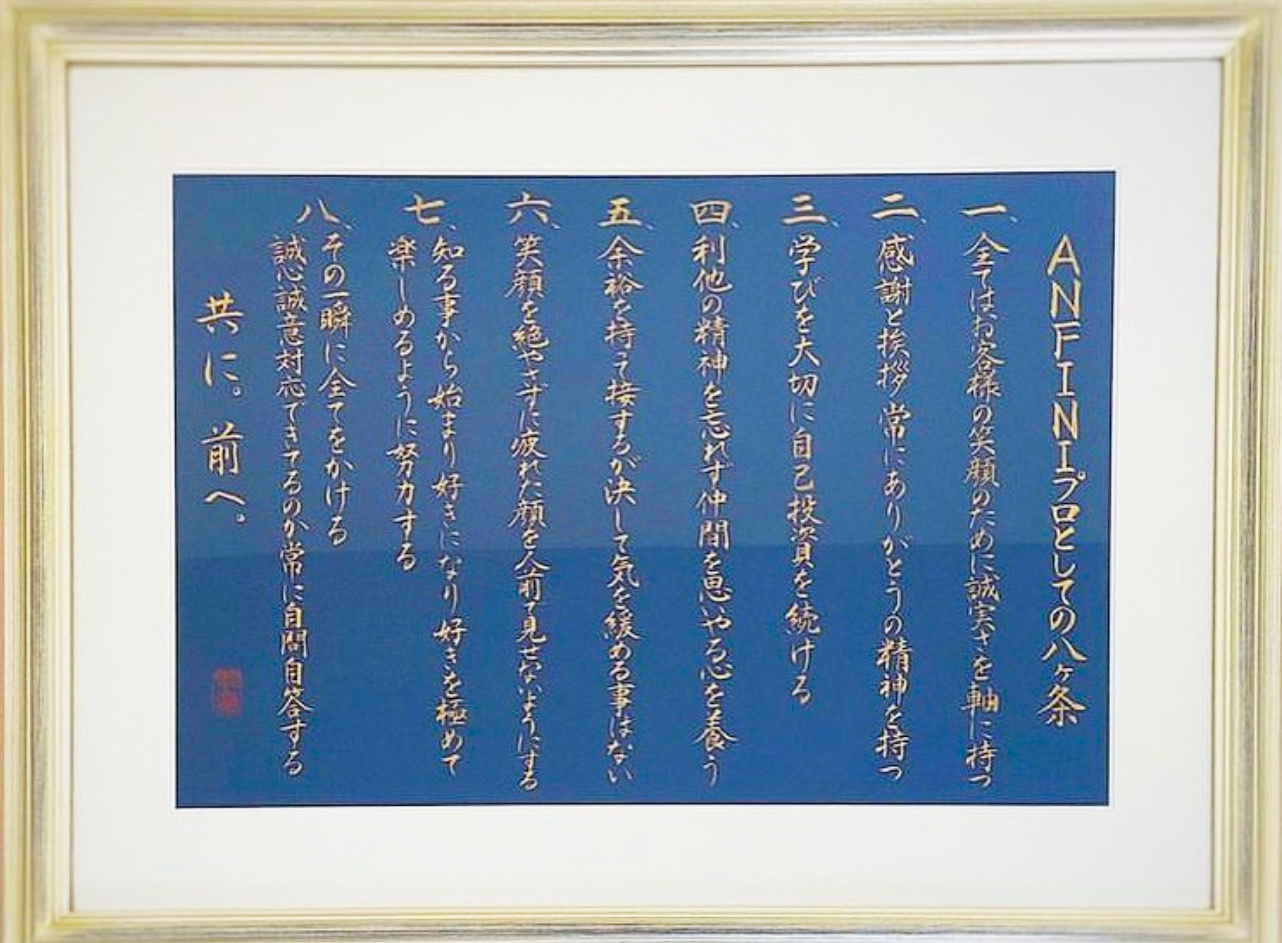 ANFINIプロとしての八ヶ条
一、全てはお客様の笑顔のために誠実さを軸に持つ
二、感謝と挨拶常にありがとうの精神を持つ
三、学びを大切に自己投資を続ける
四、利他の精神を忘れず仲間を思いやる心を養う
五、余裕を持って接するが決して気を緩める事はない
六、笑顔を絶やさずに疲れた顔を人前で見せないようにする
七、知る事から始まり好きになり好きを極めて
楽しめるように努力する
八、その一瞬に全てをかける
誠心誠意対応できてるのか常に自問自答する
共に。前へ。